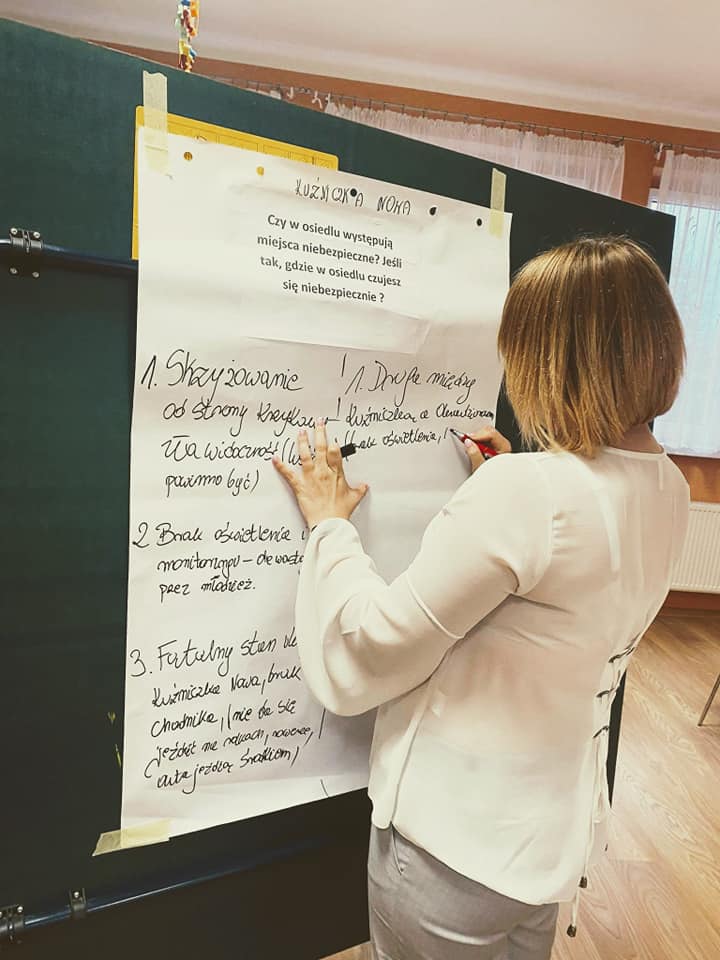 KUŹNICZKA NOWA
Czy w osiedlu występują
miejsca niebezpieczne? Jeśli
tak, gdzie w osiedlu czujesz
się niebezpiecznie ?
1. Skrzyżowanie
od strony
zła widoczność (
powinno być)
2 Brak oświetlenia i
monitoringu –
przez młodzież.
3. Fatalny stan
Kuźniczka Nowa, brak
chodnika, (nie da się
jeździć na rolkach, rowerze,
auta jeżdżą środkiem)
1. Droga między
Kuźniczką a
(brak oświetlenia,